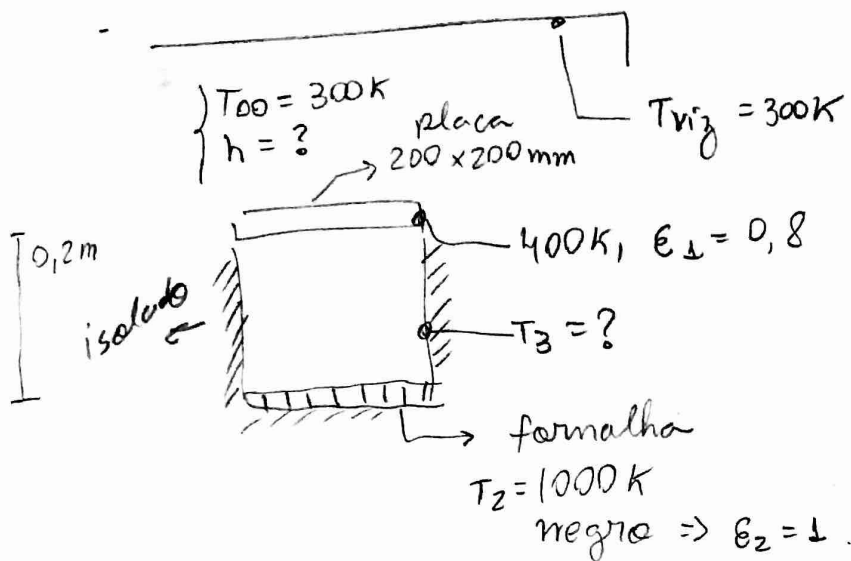 T∞ = 300K
h = ?
placa
200 x 200 mm
Tviz = 300K
0,2m
isolado
400K, ε1 = 0,8
T3 = ?
fornalha
T2 = 1000 K
negro => ε2 = 1.